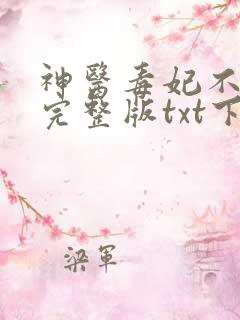 神醫毒妃不
完整版txt下
梁軍